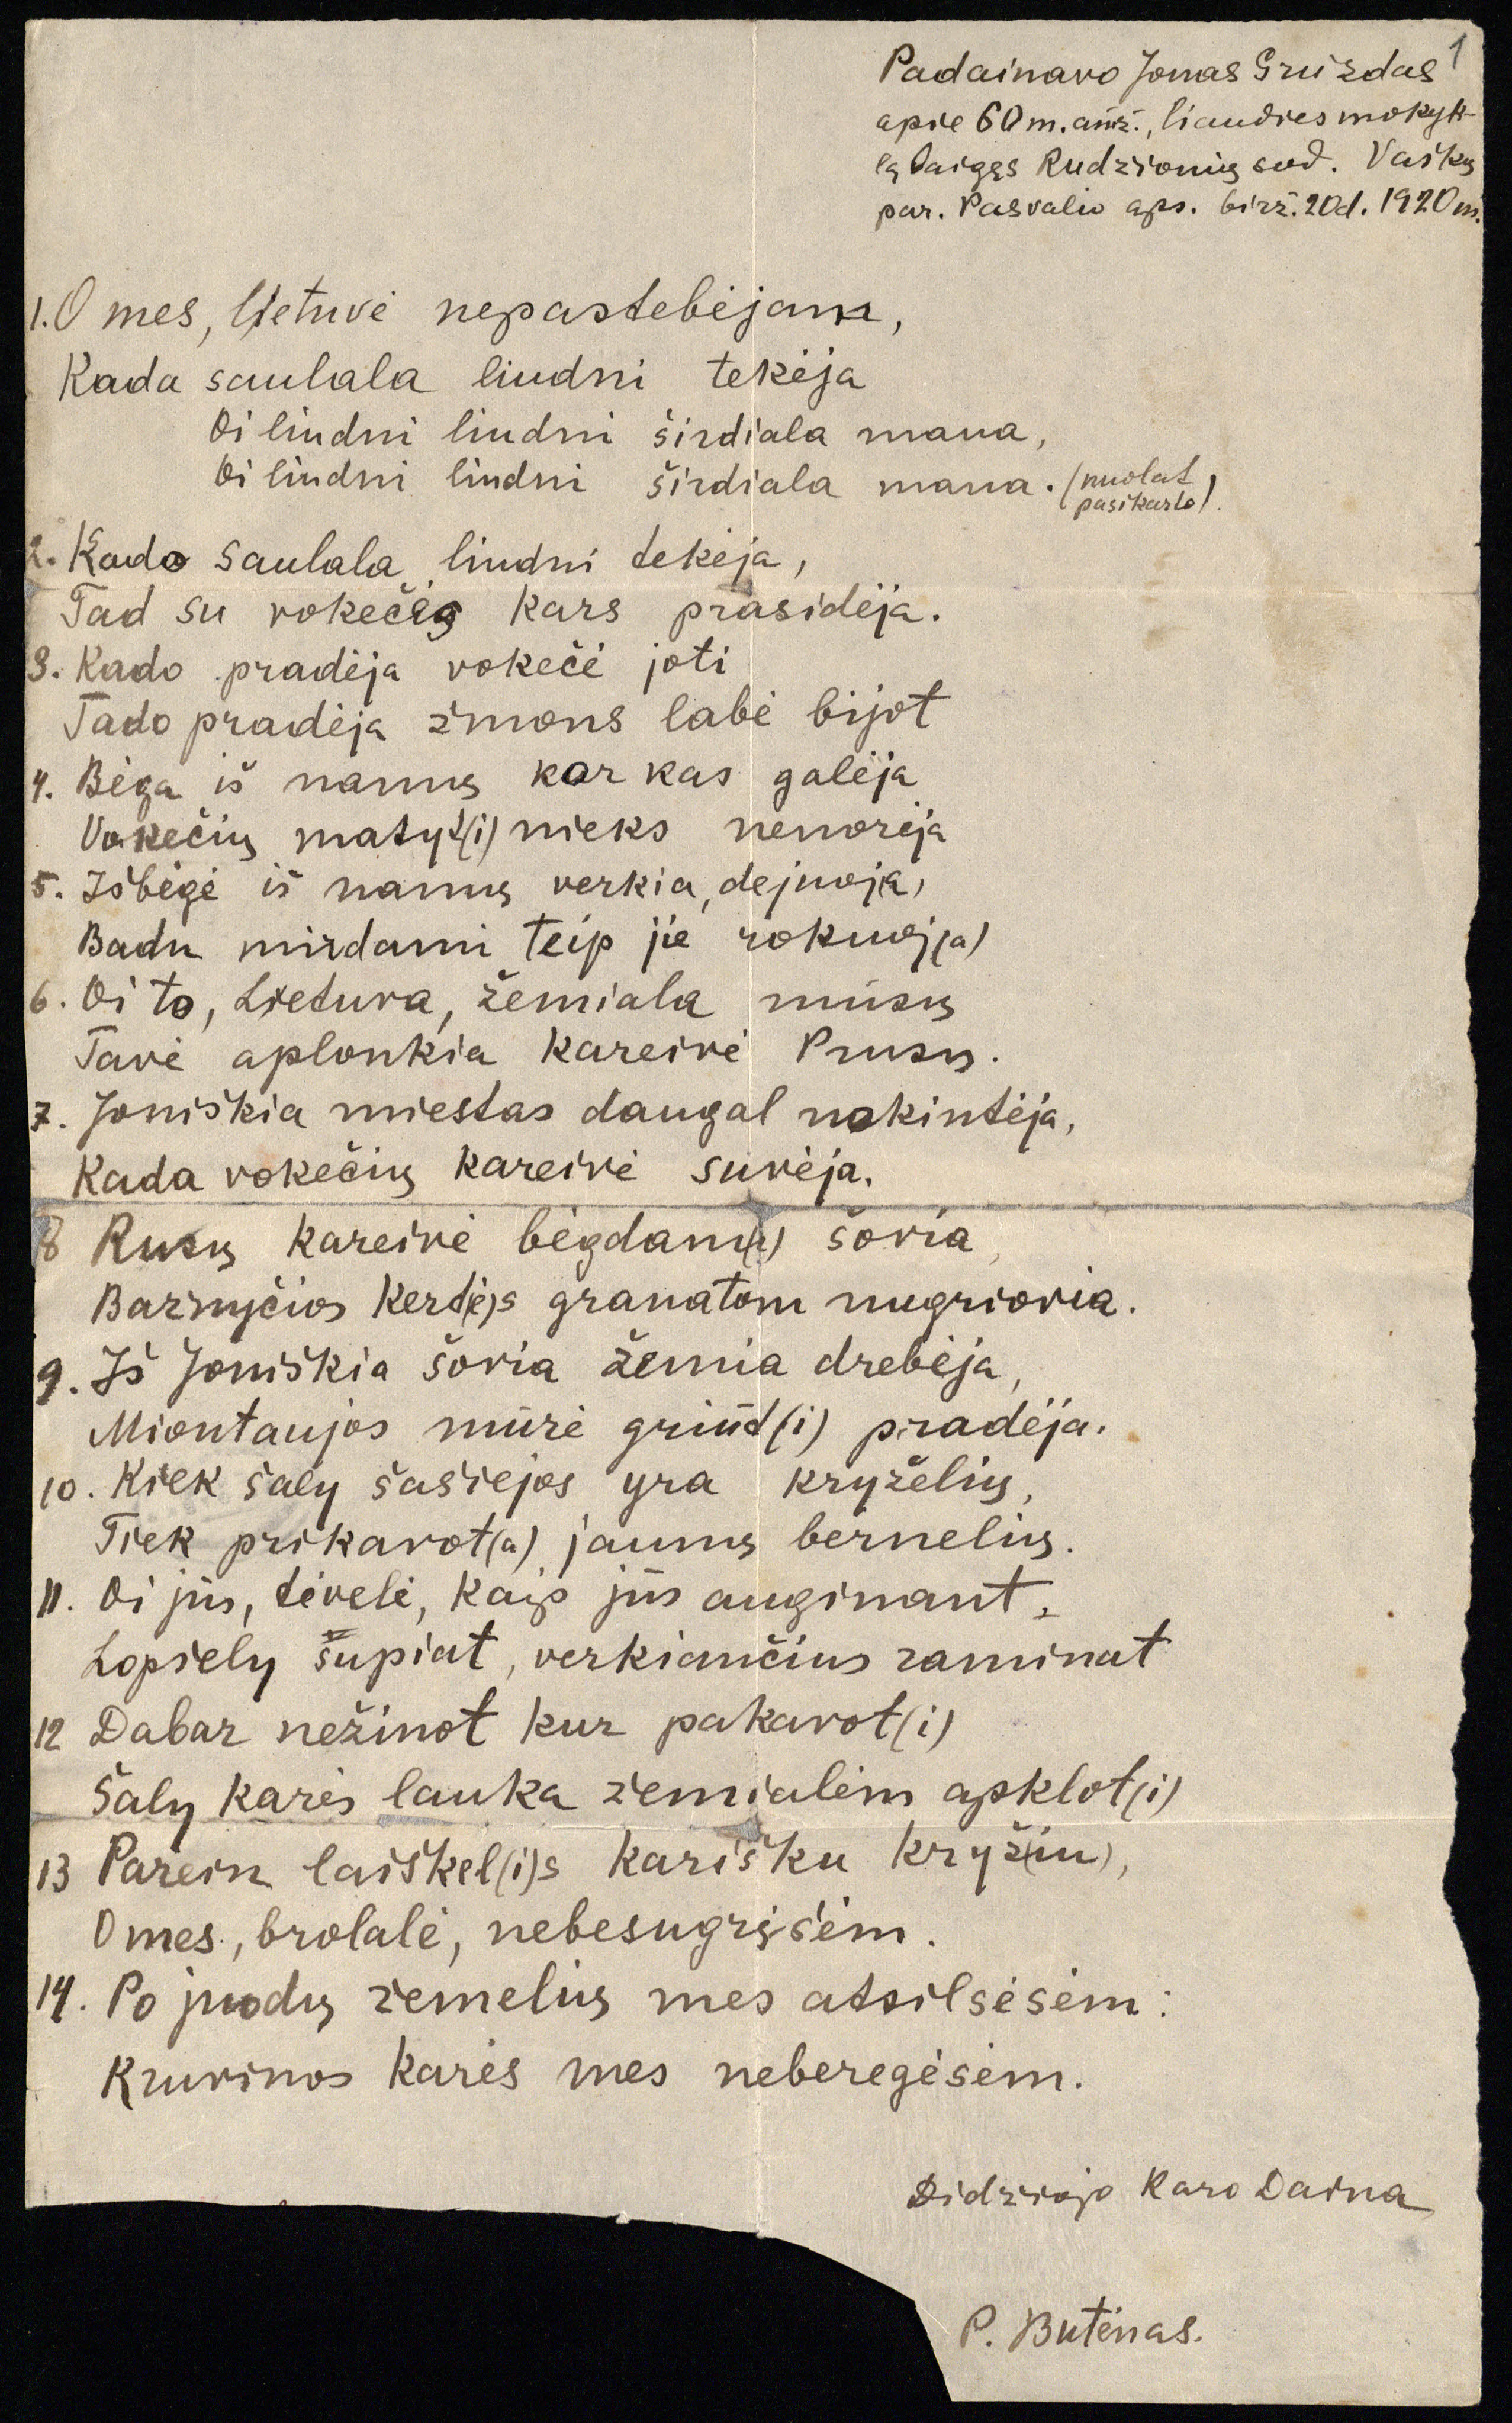 1
Padainavo Jonas Gruzdas
apie 60 m. amž., liaudies mokyk-
lą baigęs Rudžionių sod. Vaškų
par. Pasvalio aps. birž. 20 d. 1920 m.
1. O mes, Lietuvė nepastebėjam,
Kada saulala liudni tekėja
Oi liudni liudni širdiala mana,
Oi liudni liudni širdiala mana. (nuolat
pasikarto).
2. Kado saulala liudni tekėja,
Tad su vokečęs kars prasidėja.
3. Kado pradėja vokečė joti
Tado pradėja žmons labė bijot
4. Bėga iš namų kor kas galėja
Vokečių matyt(i) nieks nenorėja
5. Išbėgė iš namų verkia, dejuoja,
Badu mirdami teip jie rokuoj(a)
6. Oi to, Lietuva, žemiala mūsų
Tavė aplonkia kareivė Prusų.
7. Joniškia miestas daugal nokintėja,
Kada vokečių kareivė suvėja.
8 Rusų kareivė bėgdam(i) šovia,
Baznyčios kert(ė)s granatom nugriovia.
9. Iš Joniškia šovia žemia drebėja,
Miontaujos mūrė griūt(i) pradėja.
10. Kiek šaly šašiejos yra kryželių,
Tiek prikavot(a) jaunų bernelių.
11. Oi jūs, tėvelė, kaip jūs auginant,
Lopiely šupiat, verkiančius raminat
12 Dabar nežinot kur pakavot(i)
Šaly karės lauka žemialėm apklot(i)
13 Parein laiškel(i)s karišku kryž(iu),
O mes, brolalė, nebesugrįšėm.
14. Po juodų žemelių mes atsilsėsėm:
Kruvinos karės mes neberegėsėm.
Didžiojo Karo Daina
P. Butėnas.